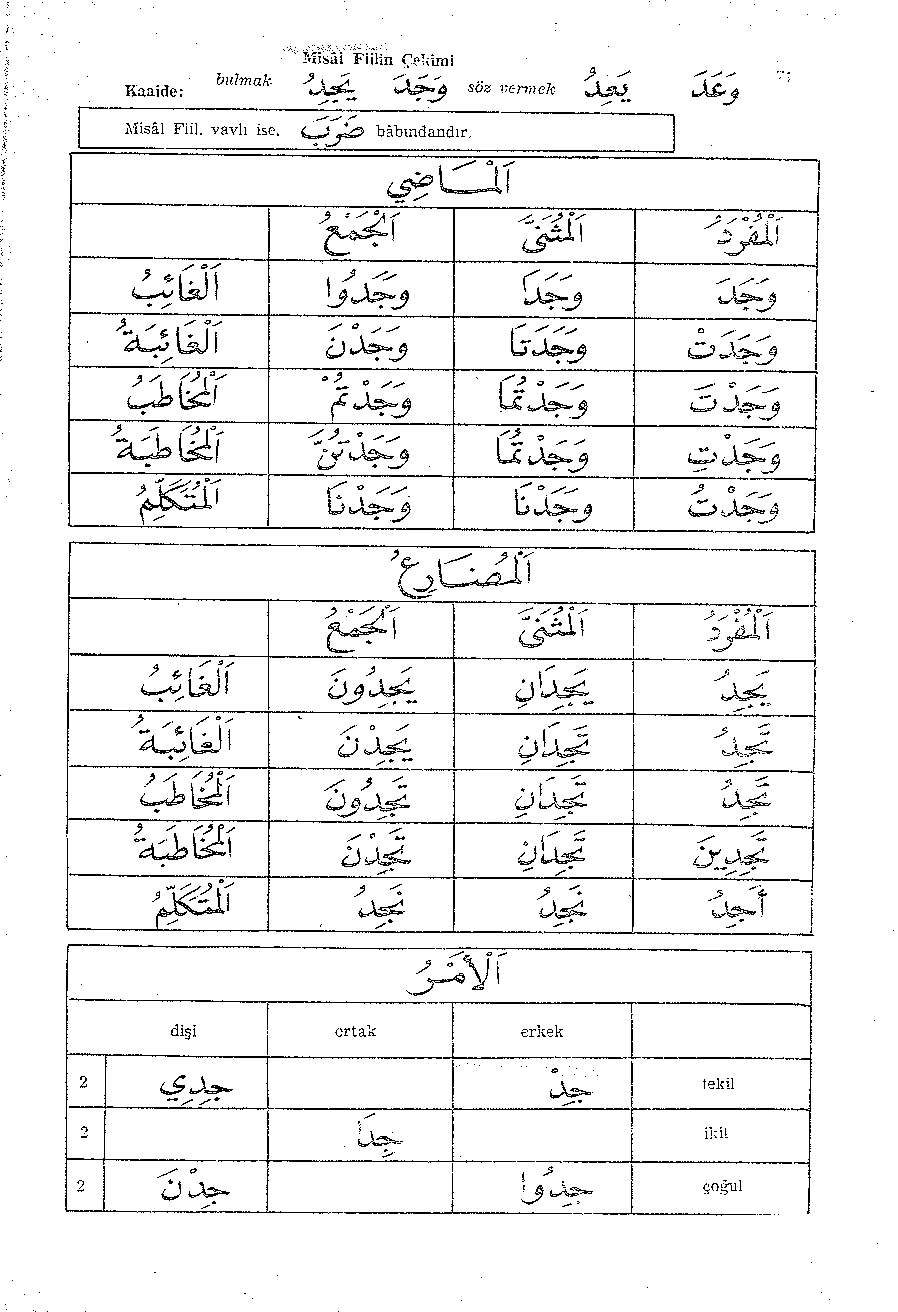 Misâl Fiilin Çekimi
Kaaide: bulmak يَجِدُ وَجَدَ söz vermek يَعِدُ وَعَدَ
Misâl Fiil. vavlı ise. ضَرَبَ bâbındandır.
اَلْمَاضِي
اَلْمُفْرَدُ اَلْمُثَنَّى اَلْجَمْعُ
وَجَدَ وَجَدَا وَجَدُوا اَلْغَائِبُ
وَجَدَتْ وَجَدَتَا وَجَدْنَ اَلْغَائِبَةُ
وَجَدْتَ وَجَدْتُمَا وَجَدْتُمْ اَلْمُخَاطَبُ
وَجَدْتِ وَجَدْتُمَا وَجَدْتُنَّ اَلْمُخَاطَبَةُ
وَجَدْتُ وَجَدْنَا وَجَدْنَا اَلْمُتَكَلِّمُ
اَلْمُضَارِعُ
اَلْمُفْرَدُ اَلْمُثَنَّى اَلْجَمْعُ
يَجِدُ يَجِدَانِ يَجِدُونَ اَلْغَائِبُ
تَجِدُ تَجِدَانِ يَجِدْنَ اَلْغَائِبَةُ
تَجِدُ تَجِدَانِ تَجِدُونَ اَلْمُخَاطَبُ
تَجِدِينَ تَجِدَانِ تَجِدْنَ اَلْمُخَاطَبَةُ
أَجِدُ نَجِدُ نَجِدُ اَلْمُتَكَلِّمُ
اَلْأَمْرُ
dişi ortak erkek
2 جِدِي جِدْ tekil
2 جِدَا ikil
2 جِدْنَ جِدُوا çoğul